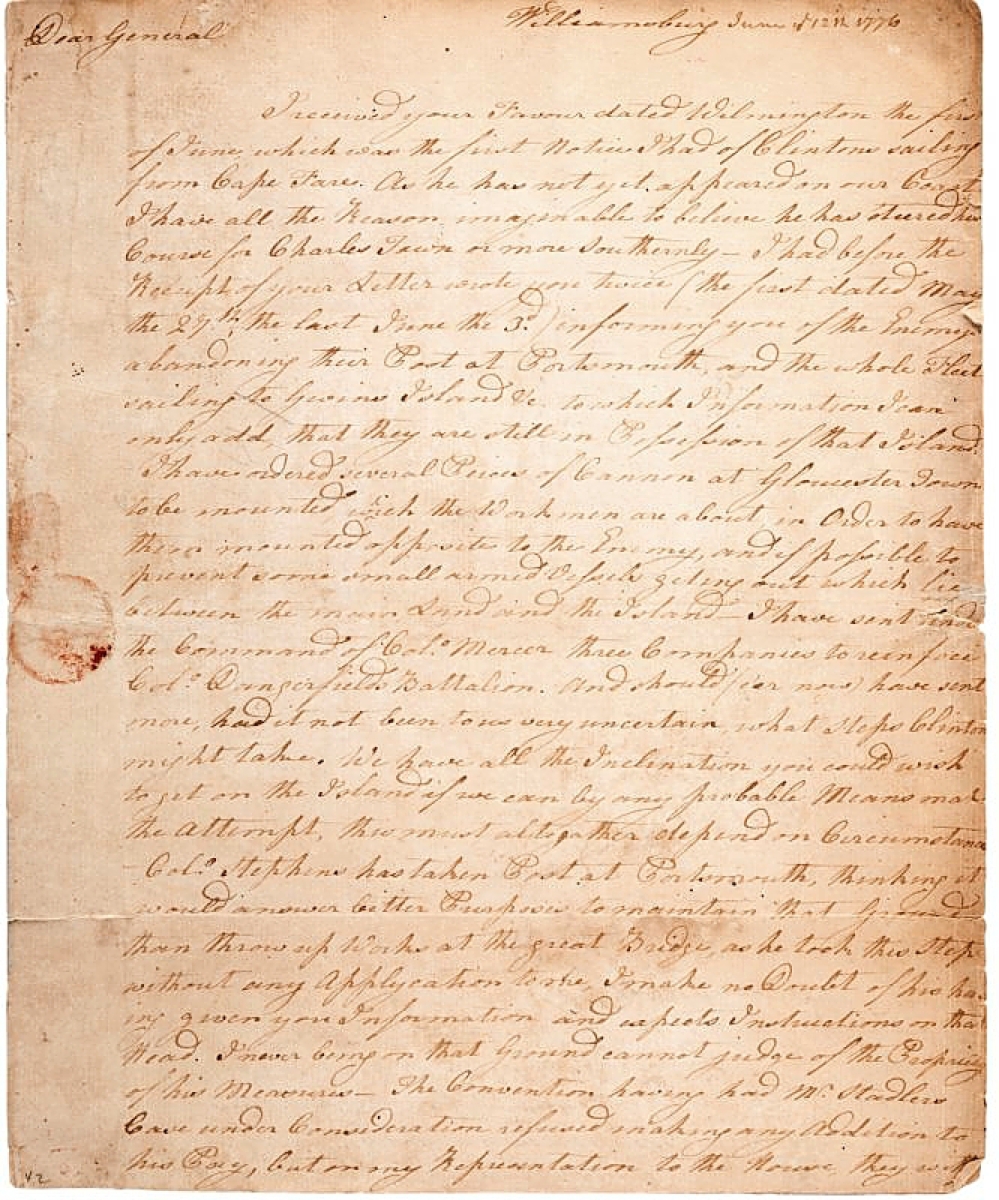 Williamsburg June 12th 1776
Dear General
I received your Favour dated Wilmington the first
of June which was the first Notice I had of Clintons sailing
from Cape Fare. As he has not yet appeared on our Coast
I have all the Reason imaginable to believe he has steered his
Course for Charles Town or more Southernly – I had before the
Receipt of your Letter wrote you twice (the first dated May
the 27th the last June the 3d) informing you of the Enemys
abandoning their Post at Portsmouth, and the whole Fleet
sailing to Gwins Island &c to which Information I can
only add, that they are still in Possession of that Island.
I have ordered several Pieces of Cannon at Gloucester Town
to be mounted, which the Workmen are about, in Order to have
them mounted opposite to the Enemy, and if possible to
prevent some small armed Vessels geting out which lie
between the main Land and the Island – I have sent under
the Command of Colo. Mercer three Companies to reinforce
Colo. Dangerfields Battalion. And should (er now) have sent
more, had it not been to us very uncertain, what Steps Clinton
might take. We have all the Inclination you could wish
to get on the Island if we can by any probable Means make
the Attempt, this must altogather depend on Circumstances
– Colo. Stephens has taken Post at Portsmouth, thinking it
would answer bitter Purposes to maintain that Ground
than throw up Works at the great Bridge, as he took this Step
without any Applycation to me, I make no Doubt of his hav
ing given you Information and expects Instructions on that
Head. I never being on that Ground cannot judge of the Propriety
of his Measures – The Convention having had Mr. Stadlers
Case under Consideration refused making any Addition to
his Pay, but on my Representation to the House, they
42